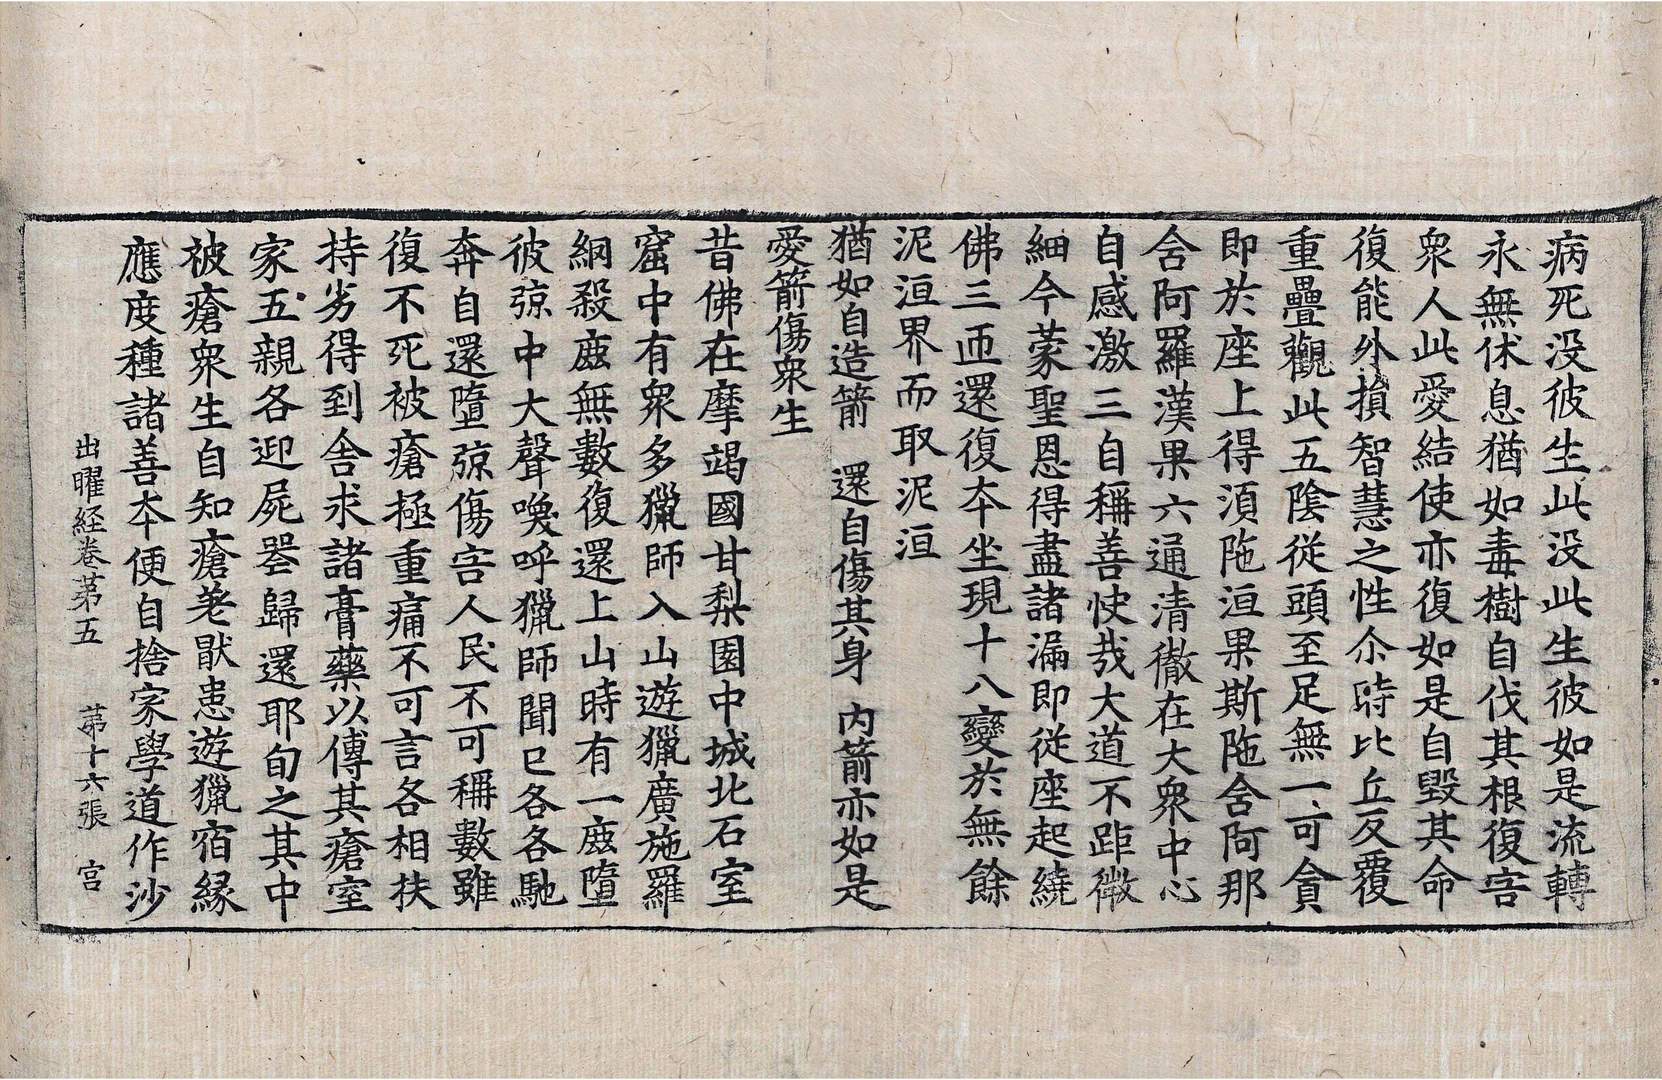 病死没彼生此没此生彼如是流轉
永無休息猶如毒樹自伐其根復害
衆人此愛結使亦復如是自毀其命
復能外損智慧之性尒時比丘反覆
重疊觀此五陰從頭至足無一可貪
即於座上得湏陁洹果斯陁含阿那
含阿羅漢果六通清徹在大衆中心
自感激三自稱善快哉大道不距微
細今蒙聖恩得盡諸漏即從座起繞
佛三迊還復夲坐現十八變於無餘
泥洹界而取泥洹
猶如自造箭　還自傷其身　内箭亦如是
愛箭傷衆生
昔佛在摩竭國甘梨園中城北石室
窟中有衆多獵師入山遊獵廣施羅
網殺鹿無數復還上山時有一鹿墮
彼弶中大聲喚呼獵師聞已各各馳
奔自還墮弶傷害人民不可稱數雖
復不死被瘡極重痛不可言各相扶
持劣得到舍求諸膏藥以傅其瘡室
家五親各迎屍喪歸還耶旬之其中
被瘡衆生自知瘡差猒患遊獵宿緣
應度種諸善夲便自捨家學道作沙
出曜経卷苐五　苐十六張　宫